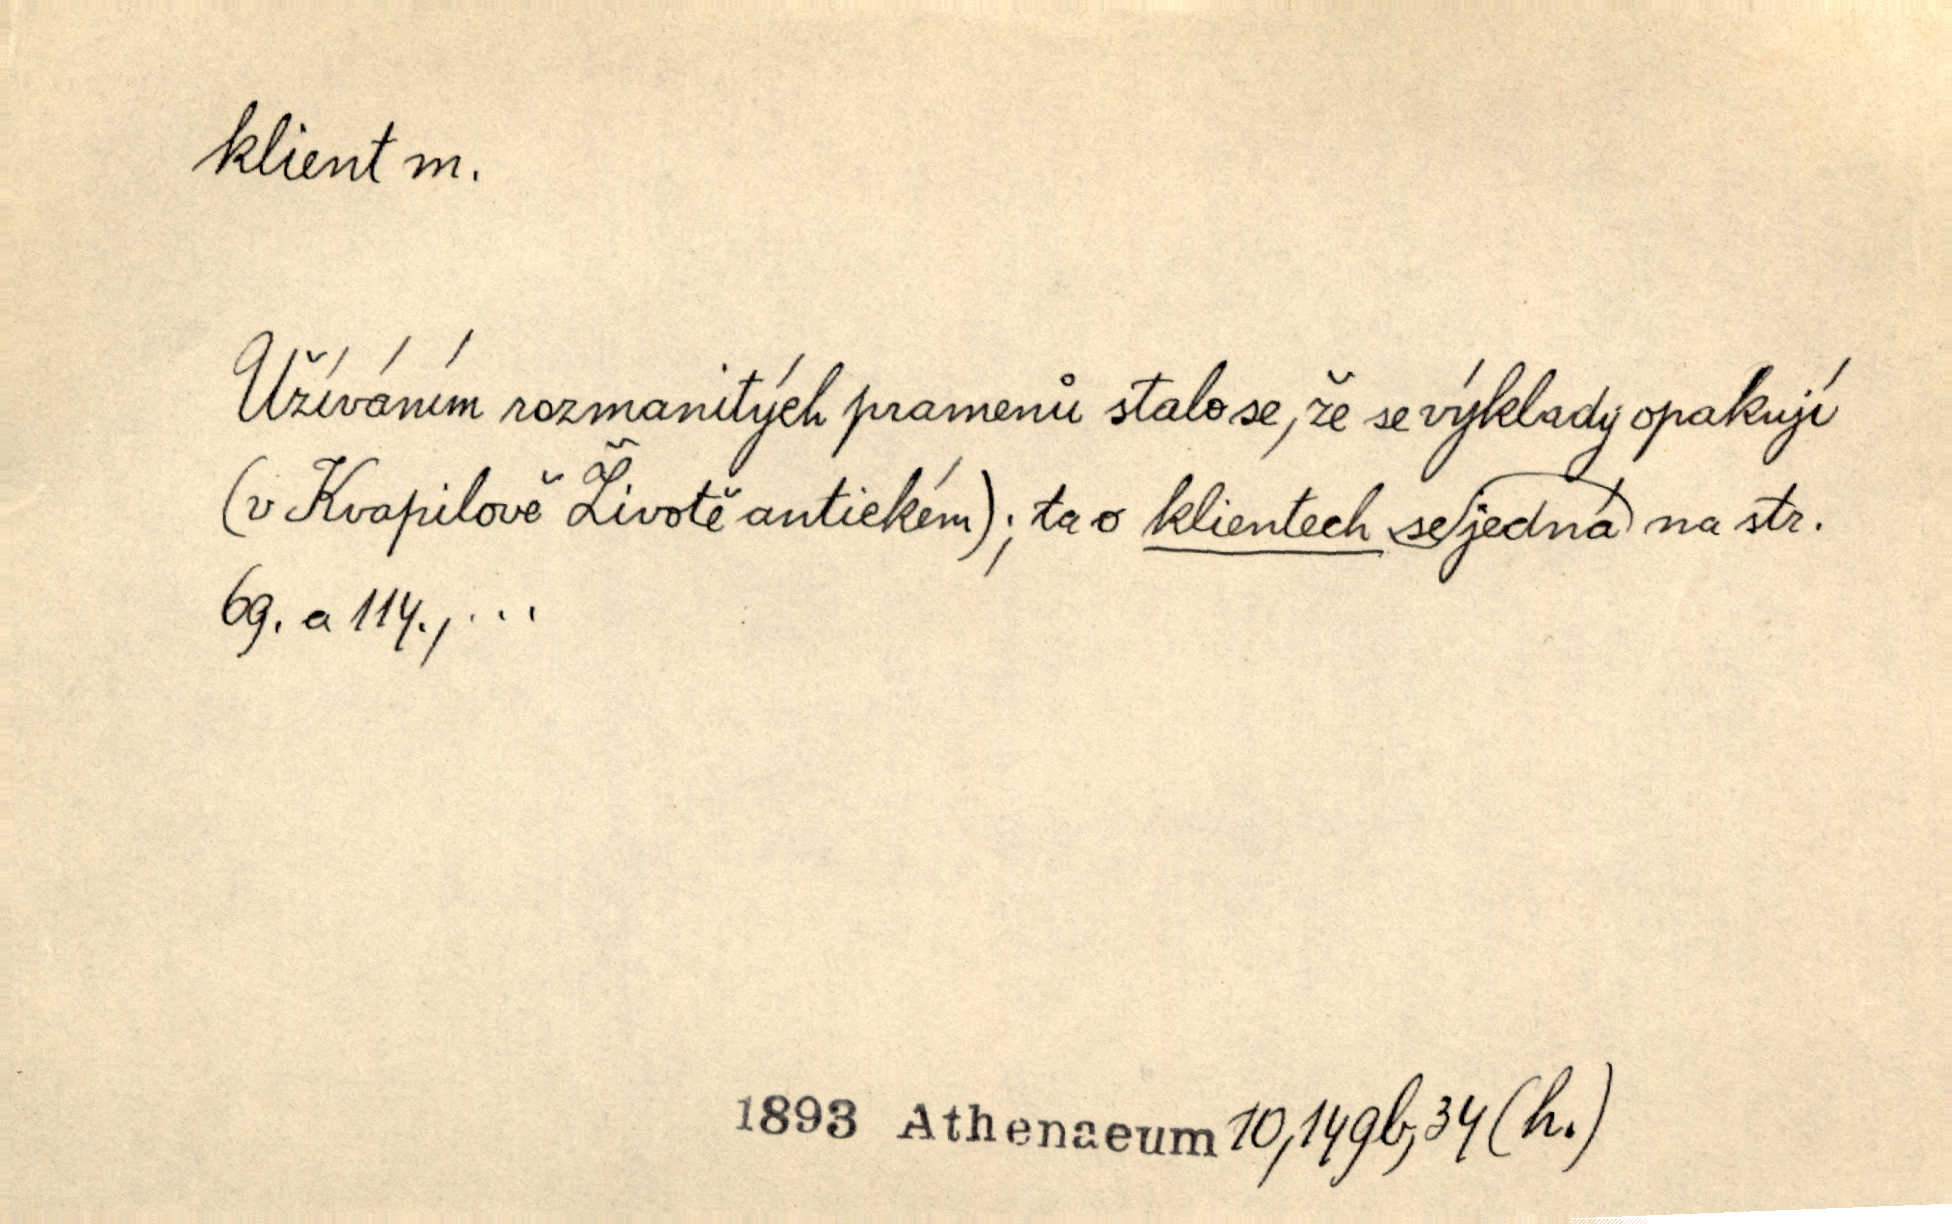 klient m.
Užíváním rozmanitých pramenů stalo se, že se výklady opakují
(v Kvapilově Životě antickém); ta o klientech se jedná na str.
69. a 114., ...
1893 Athenaeum 10,149b,34 (h.)